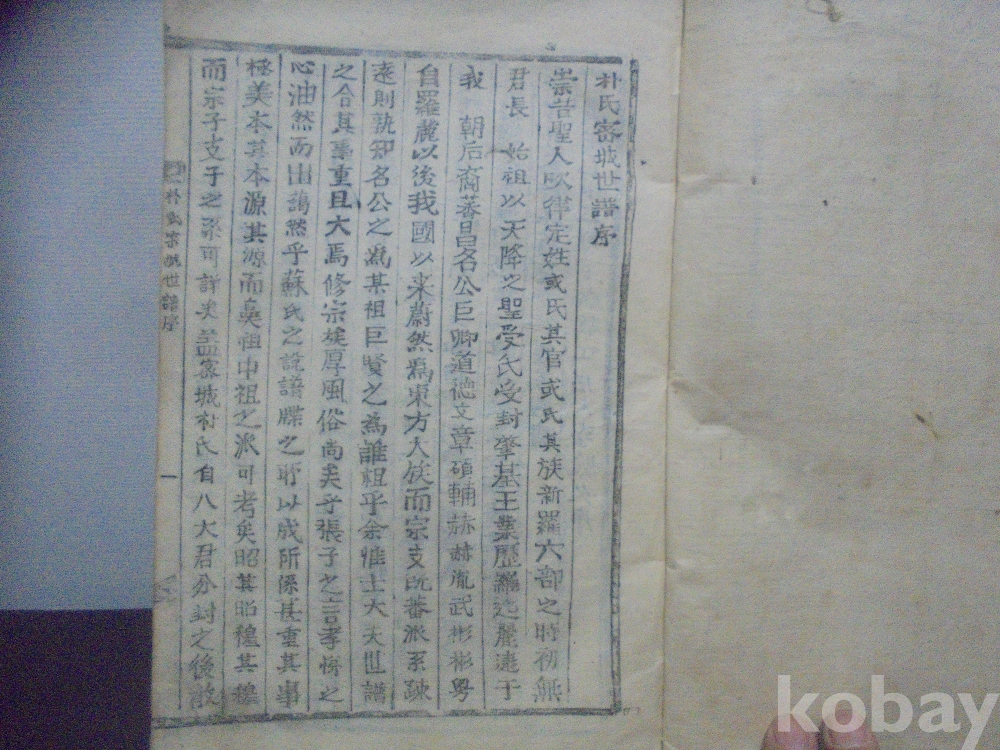 朴氏密城世譜序
崇昔聖人吹律定姓或氏其官或氏其族新羅六部之時初無
君長 始祖以天降之聖受氏受封肇基王業歷羅迄麗逮于
我 朝后裔蕃昌名公巨卿道德文章碩輔赫赫胤武彬彬粤
自羅麗以後我國以来蔚然爲東方大族而宗支旣蕃派系疎
遠則孰知名公之爲某祖巨賢之為誰祖乎余惟士大夫世譜
之合其事重且大焉修宗族厚風俗尚矣乎張子之言孝悌之
心油然而出藹然乎蘇氏之說譜牒之所以成所係甚重其事
極美本其本源其源而鼻祖中祖之派可考矣昭其昭穆其穆
而宗子支子之系可詳矣盖密城朴氏自八大君分封之後散
朴氏密城世譜序
一
kobay